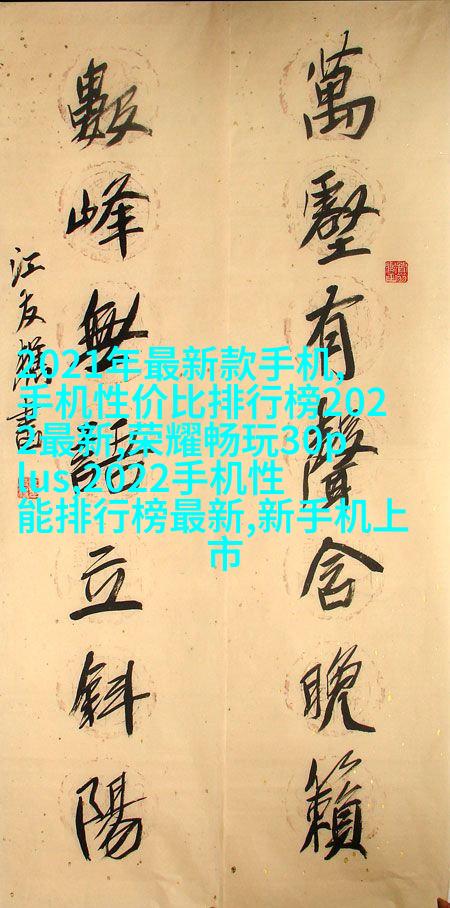 萬壑有聲含晚籟
數峰無語立斜陽
江友樵書
2021年最新款手机,
手机性价比排行榜202
2最新,荣耀畅玩30p
lus,2022手机性
能排行榜最新,新手机上
市